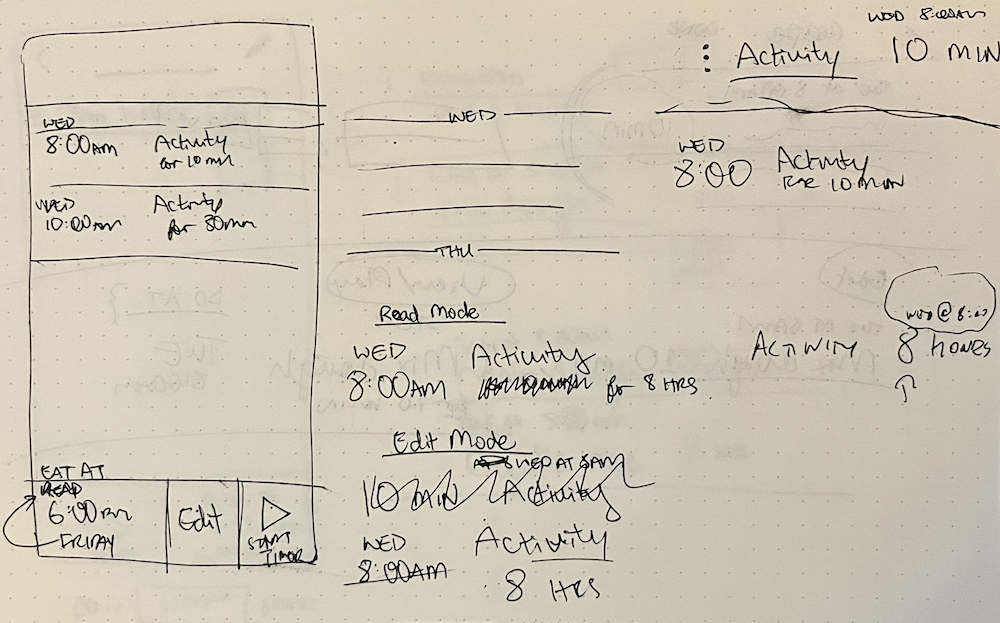 WED
8:00AM Activity
for 10 min
WED
10:00AM Activity
for 30min
EAT AT
READ
6:00PM
FRIDAY
Edit
START
TIMER
WED
THU
Read Mode
WED Activity
8:00AM for 8 HRS
Edit Mode
WED AT 8AM
10 MIN Activity
WED Activity
8:00AM
8 HRS
WED 8:00AM
Activity 10 MIN
WED
8:00 Activity
FOR 10 MIN
WED @ 8:00
ACTIVITY 8 HOURS